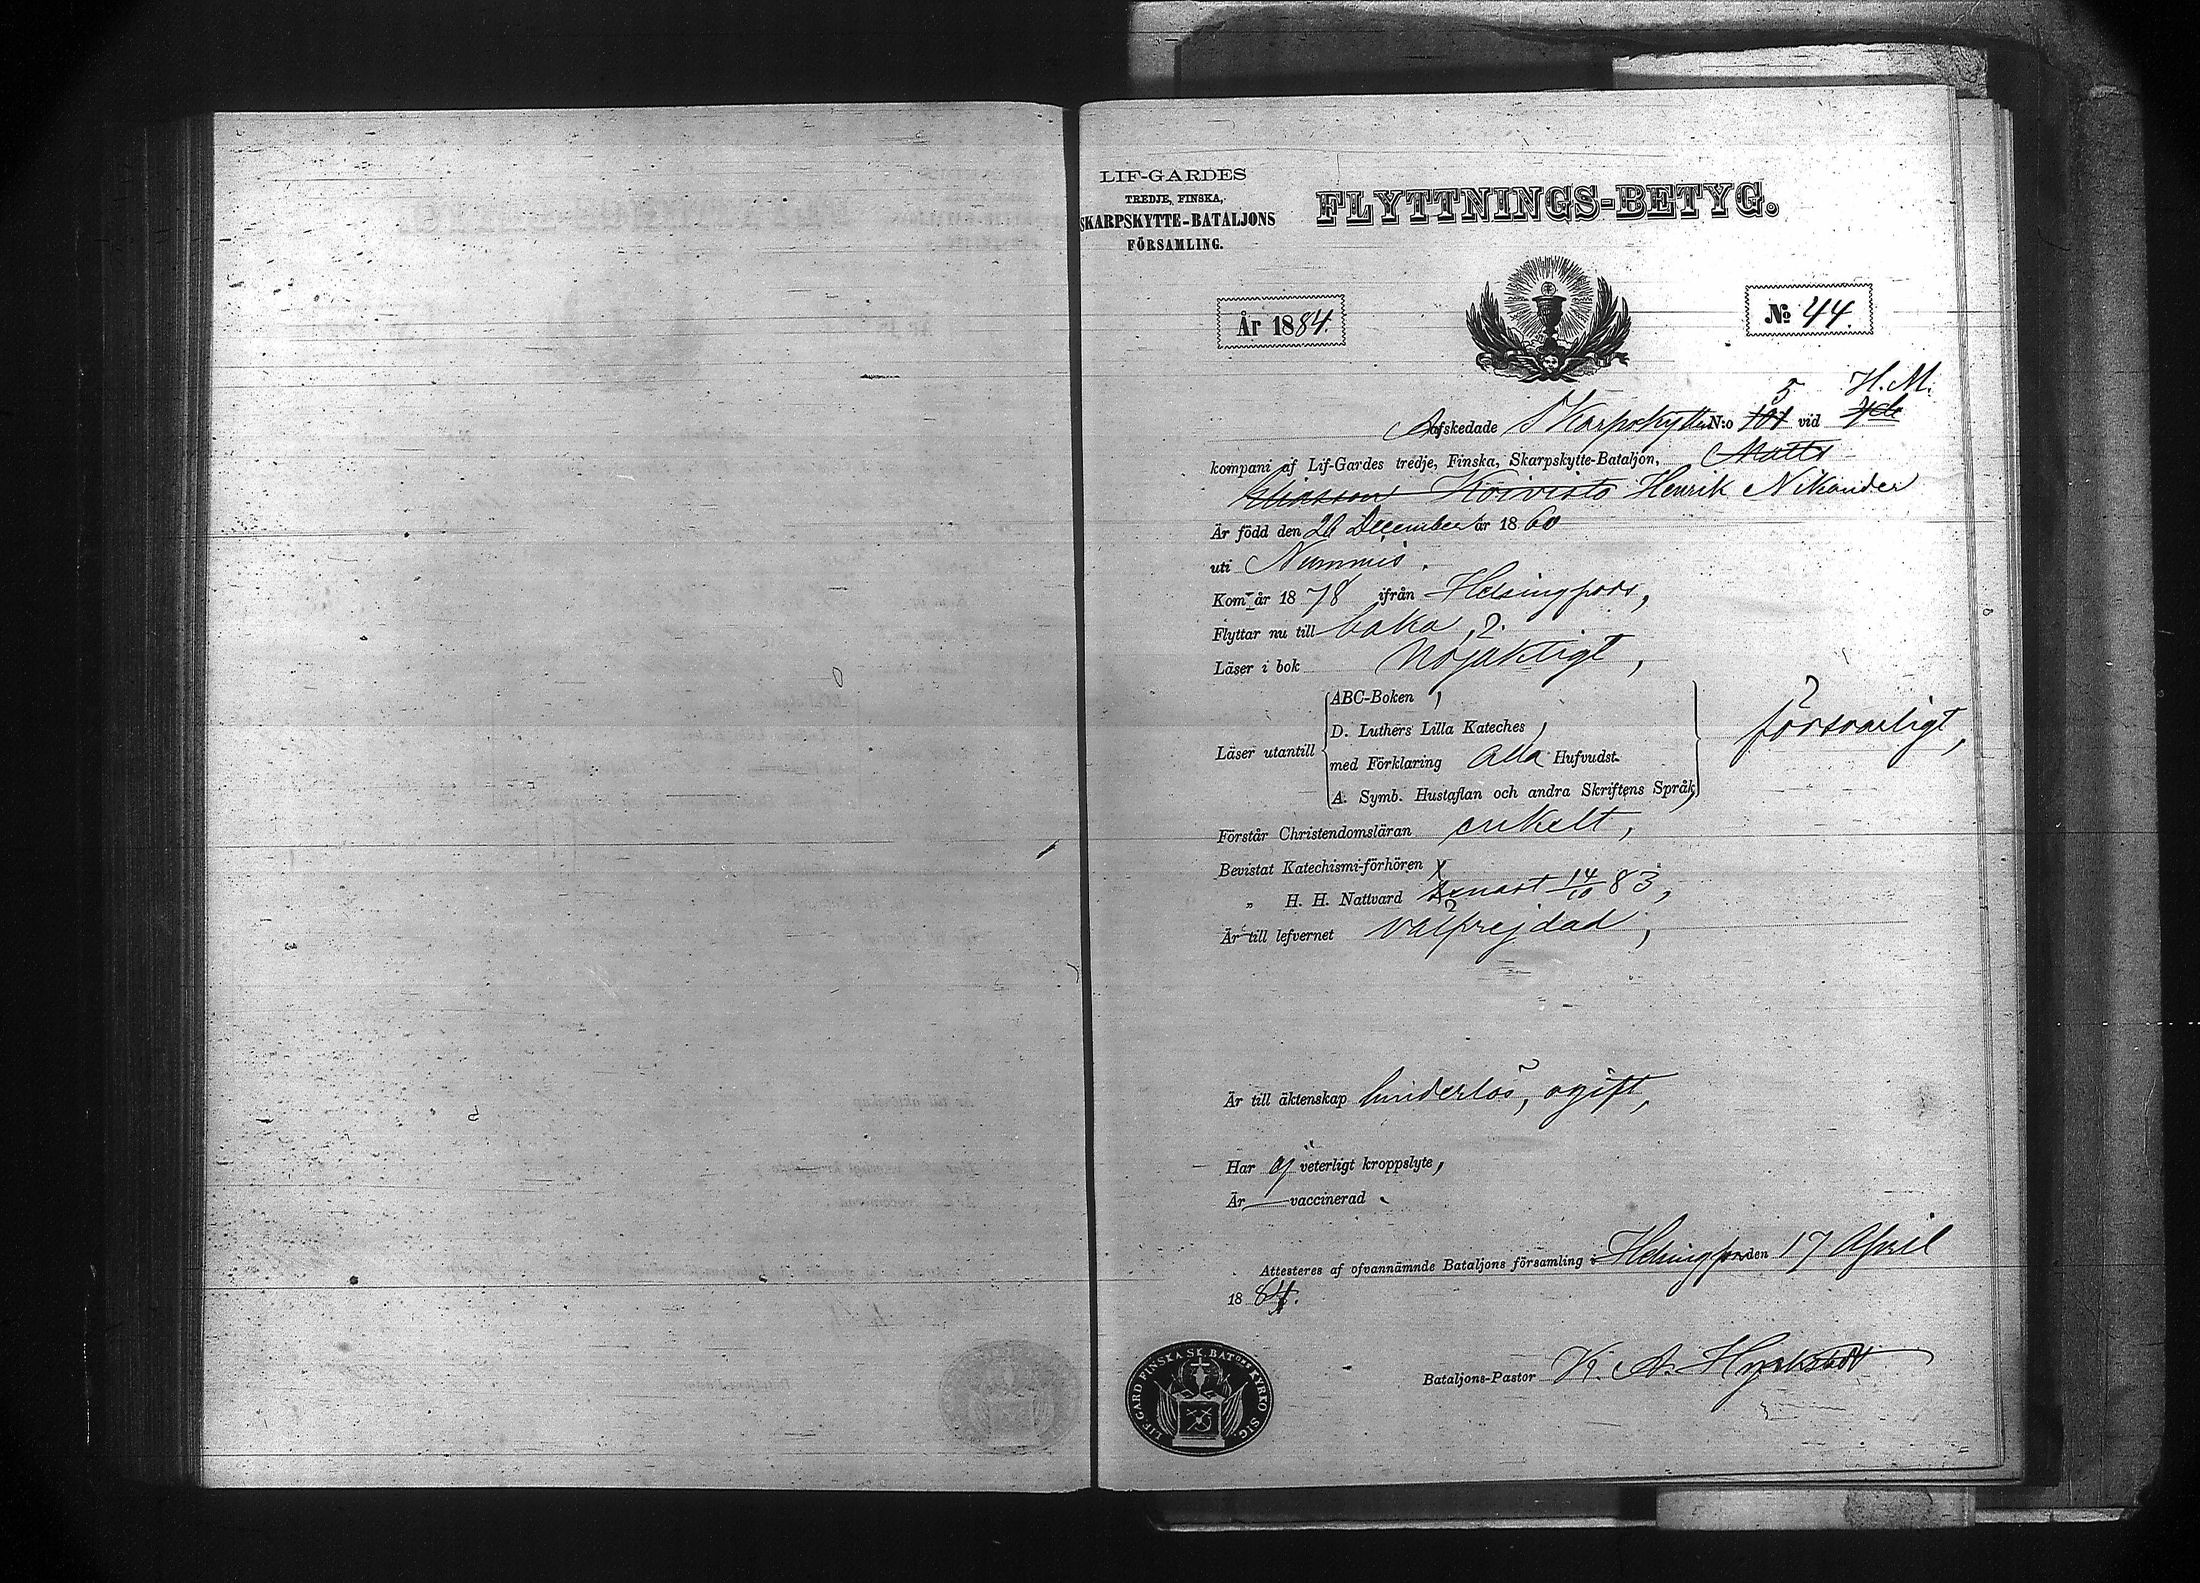 LIF-GARDES
TREDJE, FINSKA,
SKARPSKYTTE-BATALJONS
FÖRSAMLING.
FLYTTNINGS-BETYG.
År 1884.
№ 44.
5 H. M.
Afskedade Skarpskytten N:o 101 vid 4de
kompani af Lif-Gardes tredje, Finska, Skarpskytte-Bataljon, Matts
Eliasson Koivisto Henrik Nikander
Är född den 26 December år 1860
uti Nummis.
Kom år 1878 ifrån Helsingfors,
Flyttar nu till
Läser i bok nöjaktigt,
ABC-Boken,
D. Luthers Lilla Kateches,
Läser utantill
med Förklaring alla Hufvudst.
A. Symb. Hustaflan och andra Skriftens Språk,
försvarligt,
Förstår Christendomsläran enkelt,
Bevistat Katechismi-förhören
„ H. H. Nattvard senast 14/10 83,
Är till lefvernet välfrejdad,
Är till äktenskap hinderlös, ogift,
Har ej veterligt kroppslyte,
Är — vaccinerad.
Attesteras af ofvannämnde Bataljons församling i Helsingfors den 17 April
1884.
Bataljons-Pastor K. A.
LIF-GARD FINSKA SK. BAT:ONS KYRKO SIG.